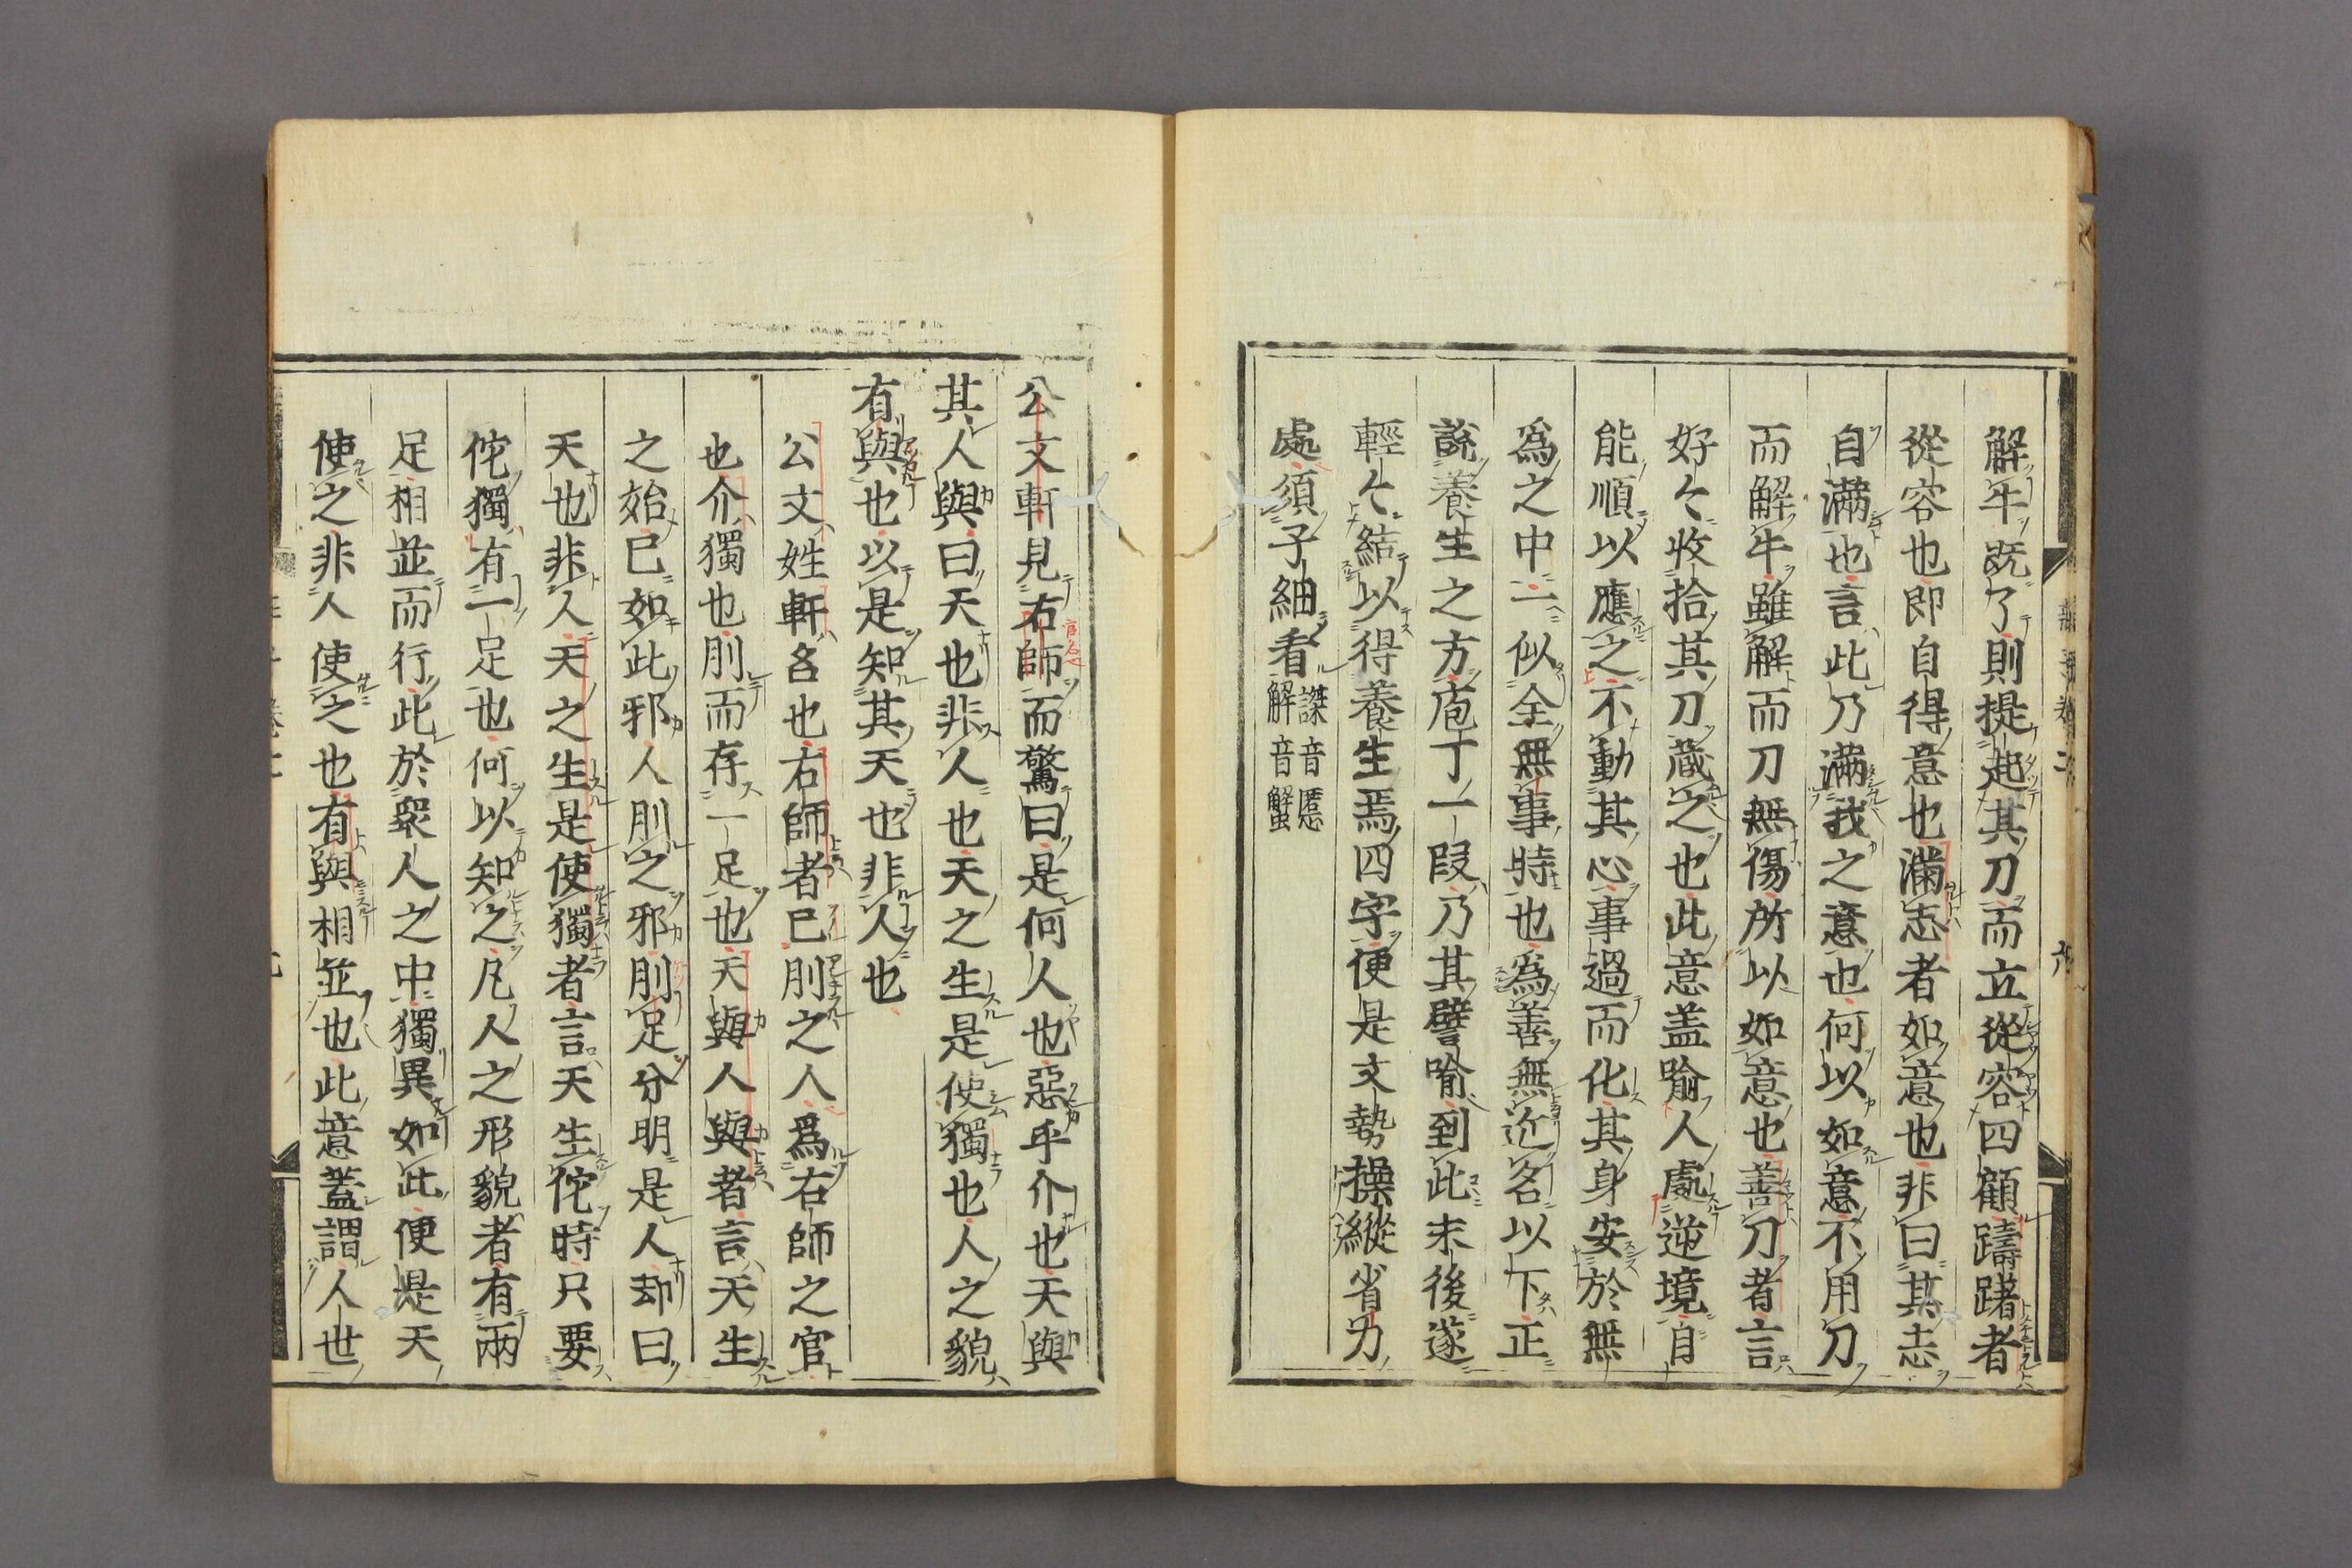 解牛既了則提起其刀而立從容四顧躊躇者
從容也即自得意也滿志者如意也非曰其志
自滿也言此乃滿我之意也何以如意不用刀
而解牛雖解而刀無傷所以如意也善刀者言
好々收拾其刀藏之也此意盖喻人處逆境自
能順以應之不動其心事過而化其身安於無
爲之中一似全無事時也爲善無近名以下正
說養生之方庖丁一段乃其譬喻到此末後遂
輕々結以得養生焉四字便是文勢操縱省力
處須子細看
謋音慝
解音蟹
公文軒見右師而驚曰是何人也惡乎介也天與
其人與曰天也非人也天之生是使獨也人之貌
有與也以是知其天也非人也
公文姓軒名也右師者已刖之人爲右師之官
也介獨也刖而存一足也天與人與者言天生
之始已如此邪人刖之邪刖足分明是人却曰
天也非人天之生是使獨者言天生佗時只要
佗獨有一足也何以知之凡人之形貌者有兩
足相並而行此於衆人之中獨異如此便是天
使之非人使之也有與相並也此意蓋謂人世